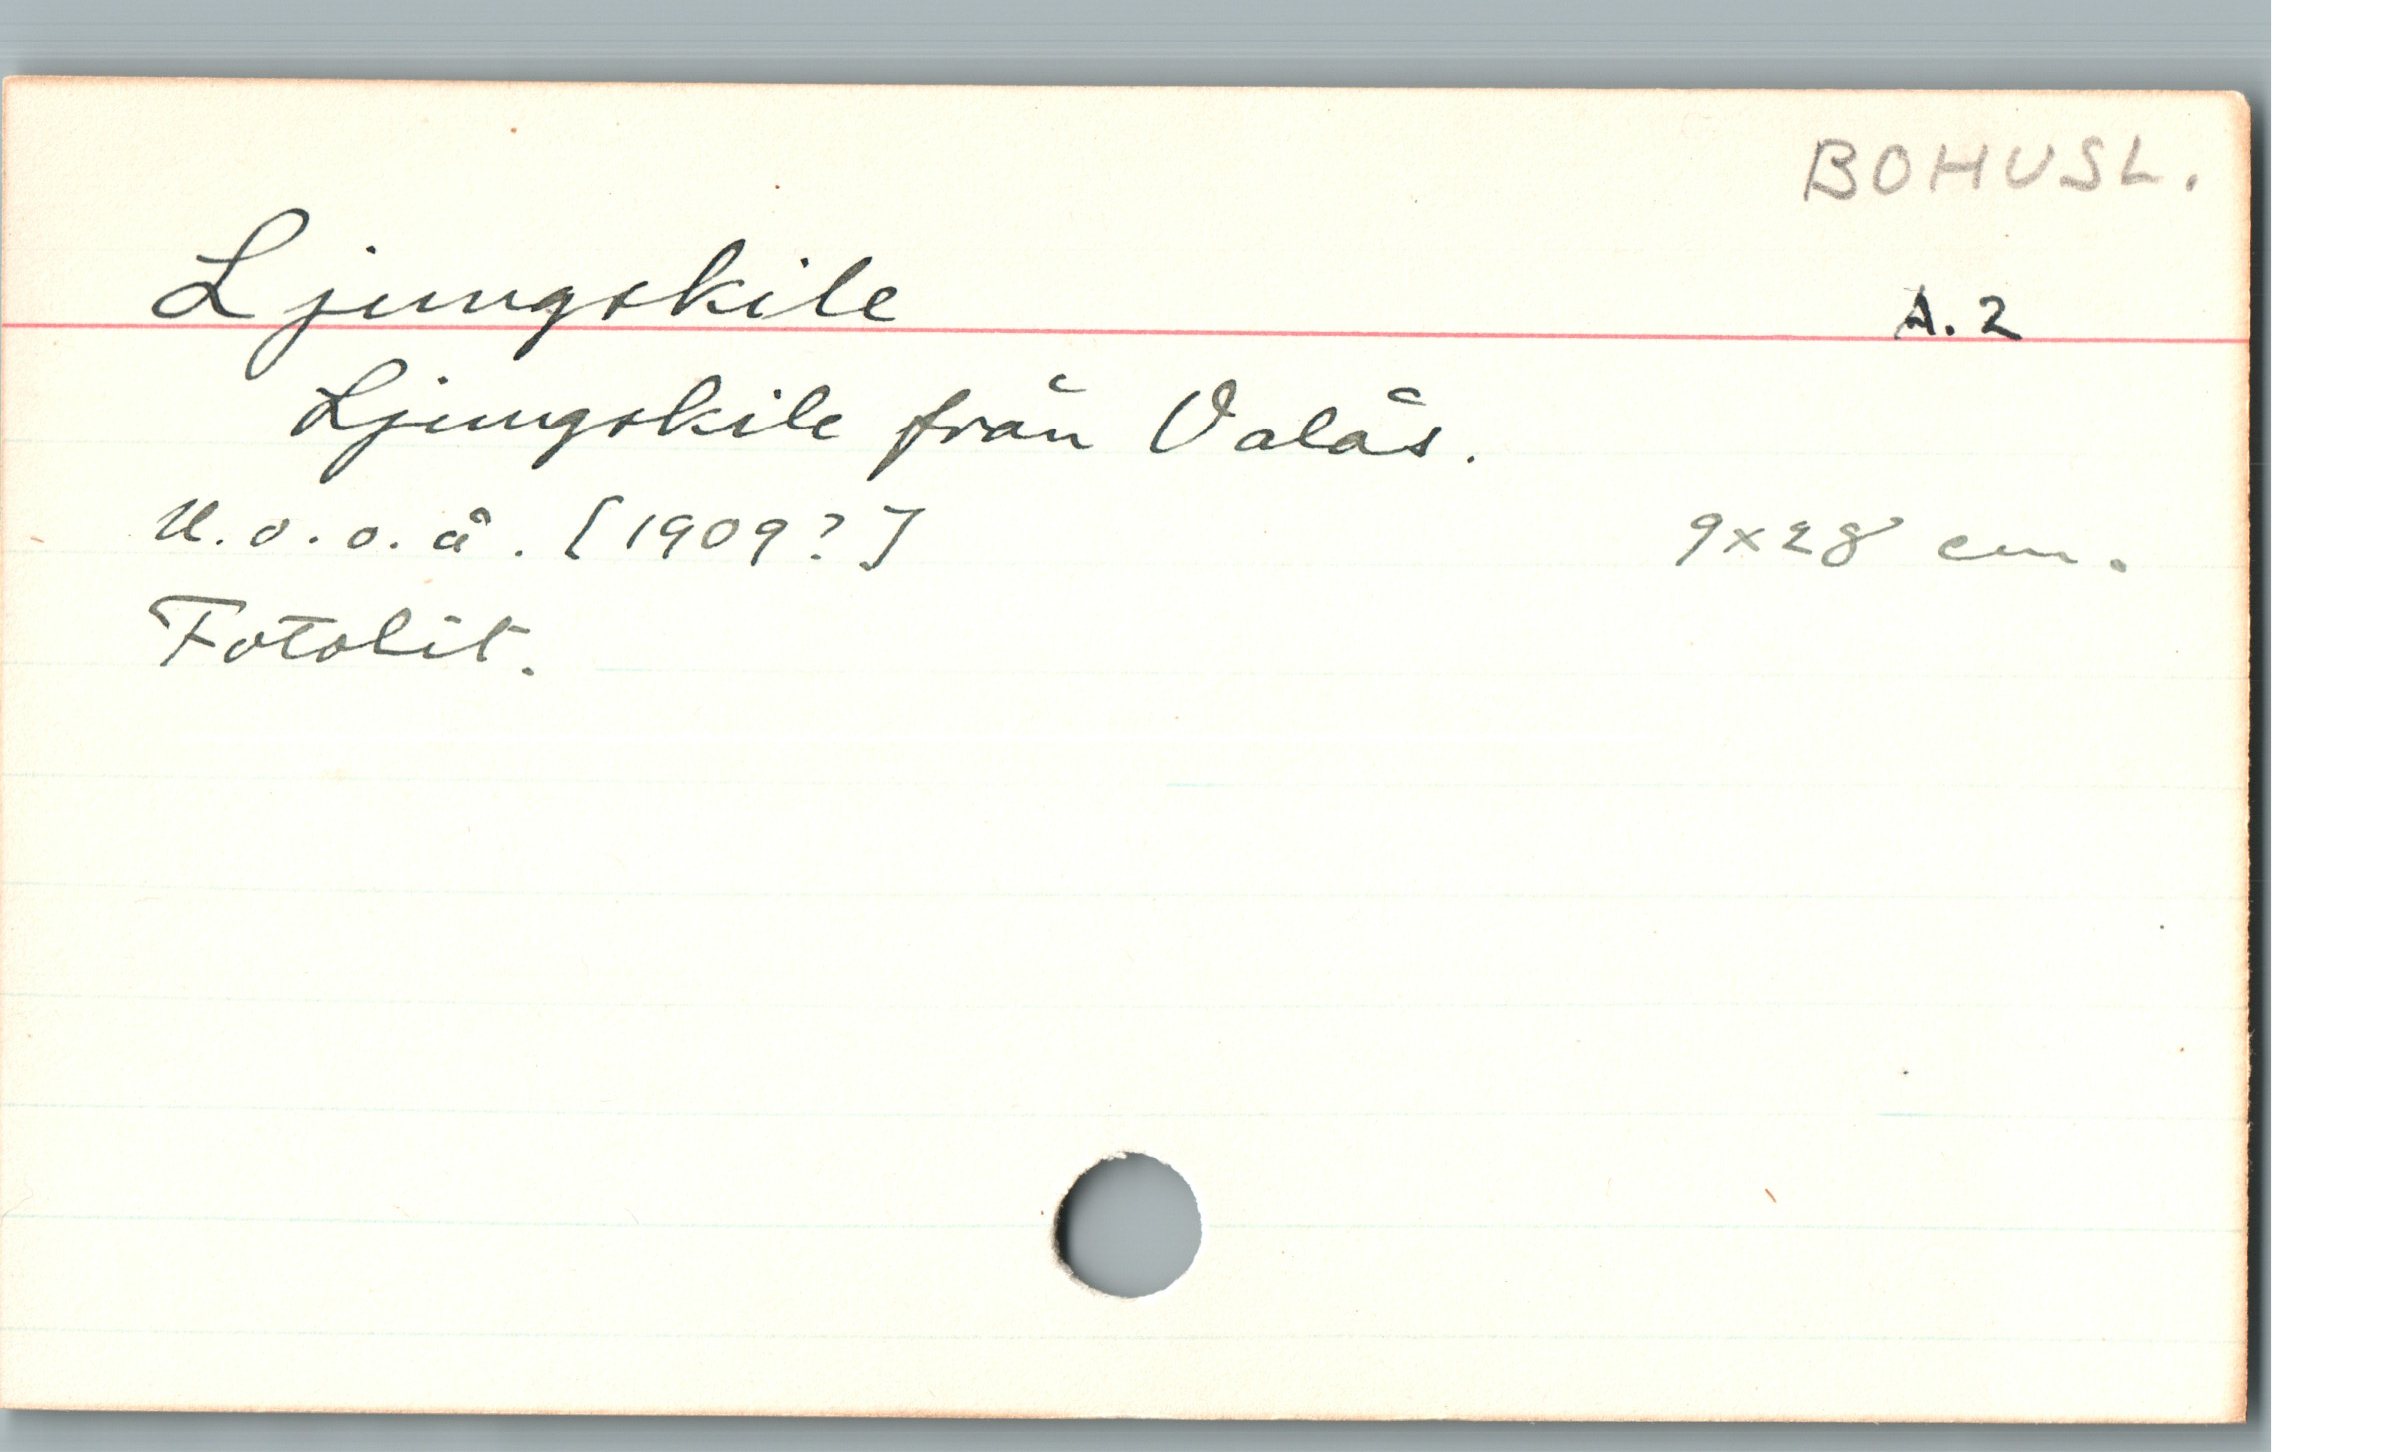 BOHUSL.
Ljungskile A.2
Ljungskile från Valås.
U.o.o.å. [1909?] 9x28 cm.
Fotolit.